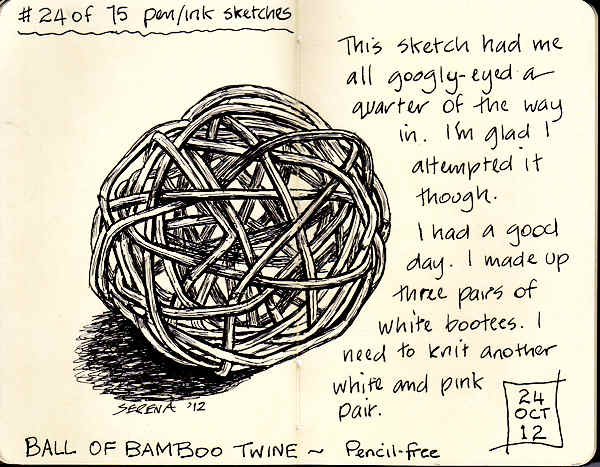 #24 of 75 pen/ink sketches
This sketch had me
all googly-eyed a
quarter of the way
in. I'm glad I
attempted it
though.
I had a good
day. I made up
three pairs of
white bootees. I
need to knit another
white and pink
pair.
24
OCT
12
SERENA '12
BALL OF BAMBOO TWINE ~ Pencil-free